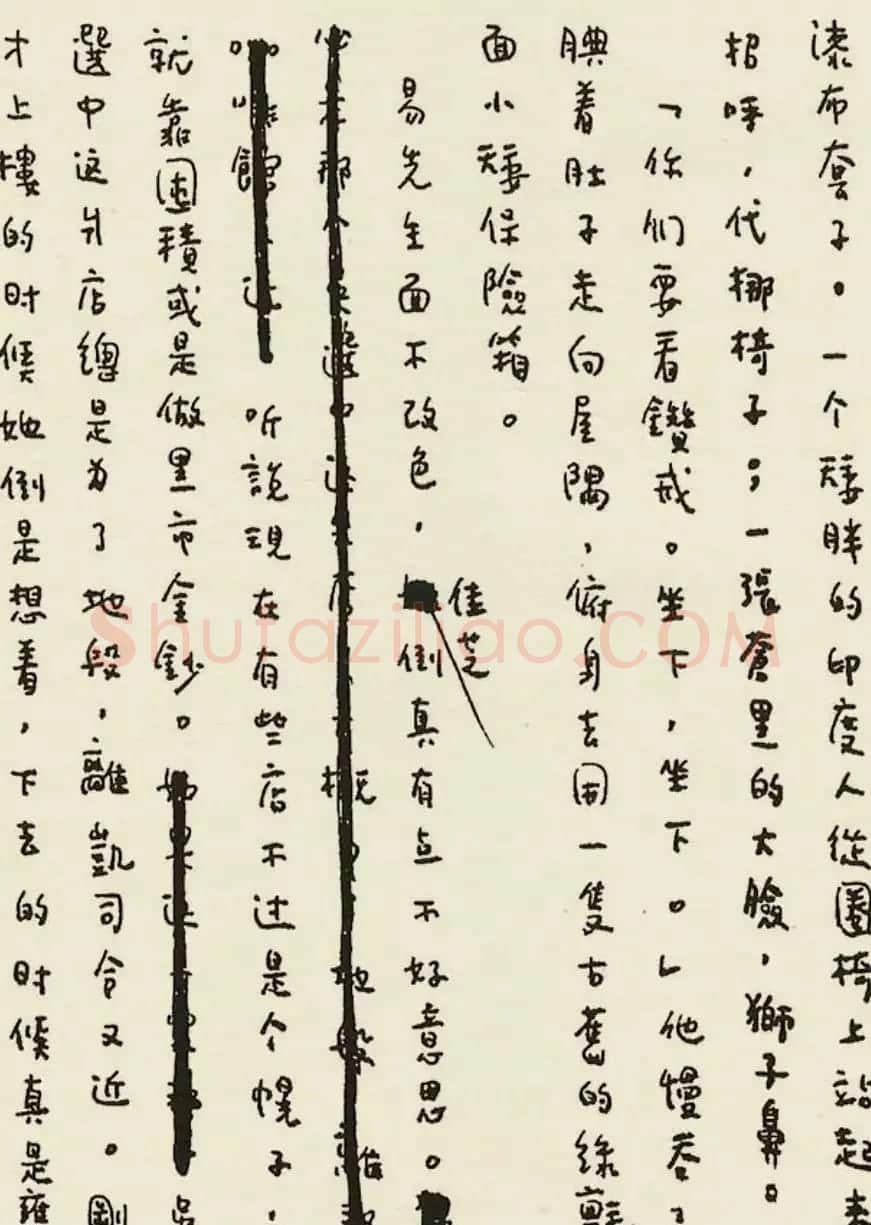 漆布套子。一个矮胖的印度人從圈椅上站起來
招呼，代挪椅子；一張蒼黑的大臉，獅子鼻。
「你们要看鑽戒。坐下，坐下。」他慢吞
腆着肚子走向屋隅，俯身去開一隻古舊的綠
面小矮保險箱。
佳芝
易先生面不改色，倒真有点不好意思。
听說現在有些店不过是个幌子，
就靠囤積或是做黑市金鈔。
選中这爿店總是为了地段，離凱司令又近。剛
才上樓的时候她倒是想着，下去的时候真是甕
Shufaziliao.COM